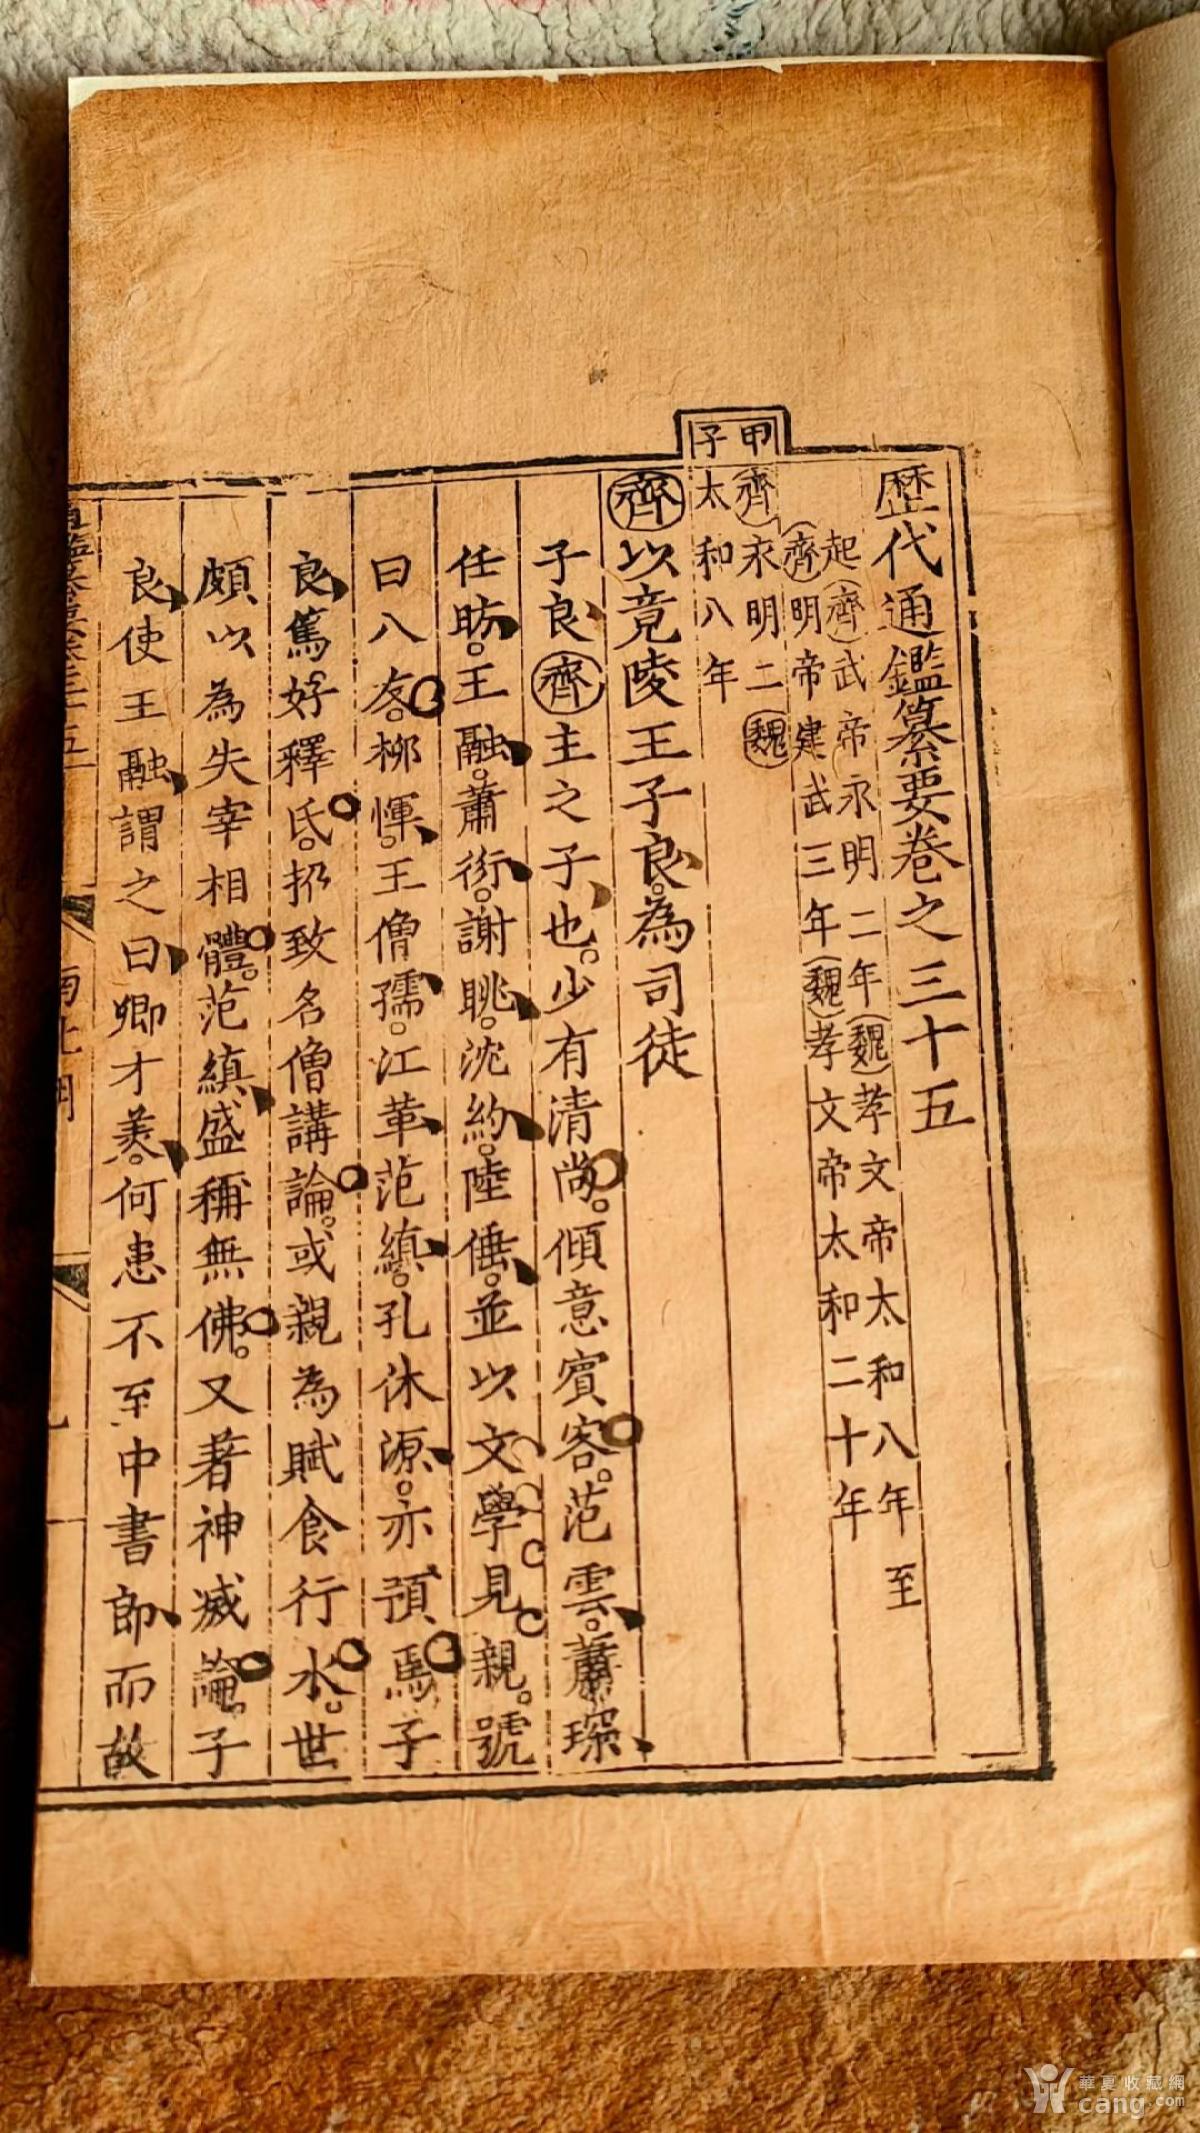 歷代通鑑纂要卷之三十五
起齊武帝永明二年魏孝文帝太和八年至
齊明帝建武三年魏孝文帝太和二十年
甲子
齊永明二魏
太和八年
齊以竟陵王子良為司徒
子良齊主之子也少有清尚傾意賓客范雲蕭琛
任昉王融蕭衍謝眺沈約陸倕並以文學見親號
曰八友柳惲王僧孺江革范縝孔休源亦預焉子
良篤好釋氏招致名僧講論或親為賦食行水世
頗以為失宰相體范縝盛稱無佛又著神滅論子
良使王融謂之曰卿才美何患不至中書郎而故
華夏收藏網
cang.com